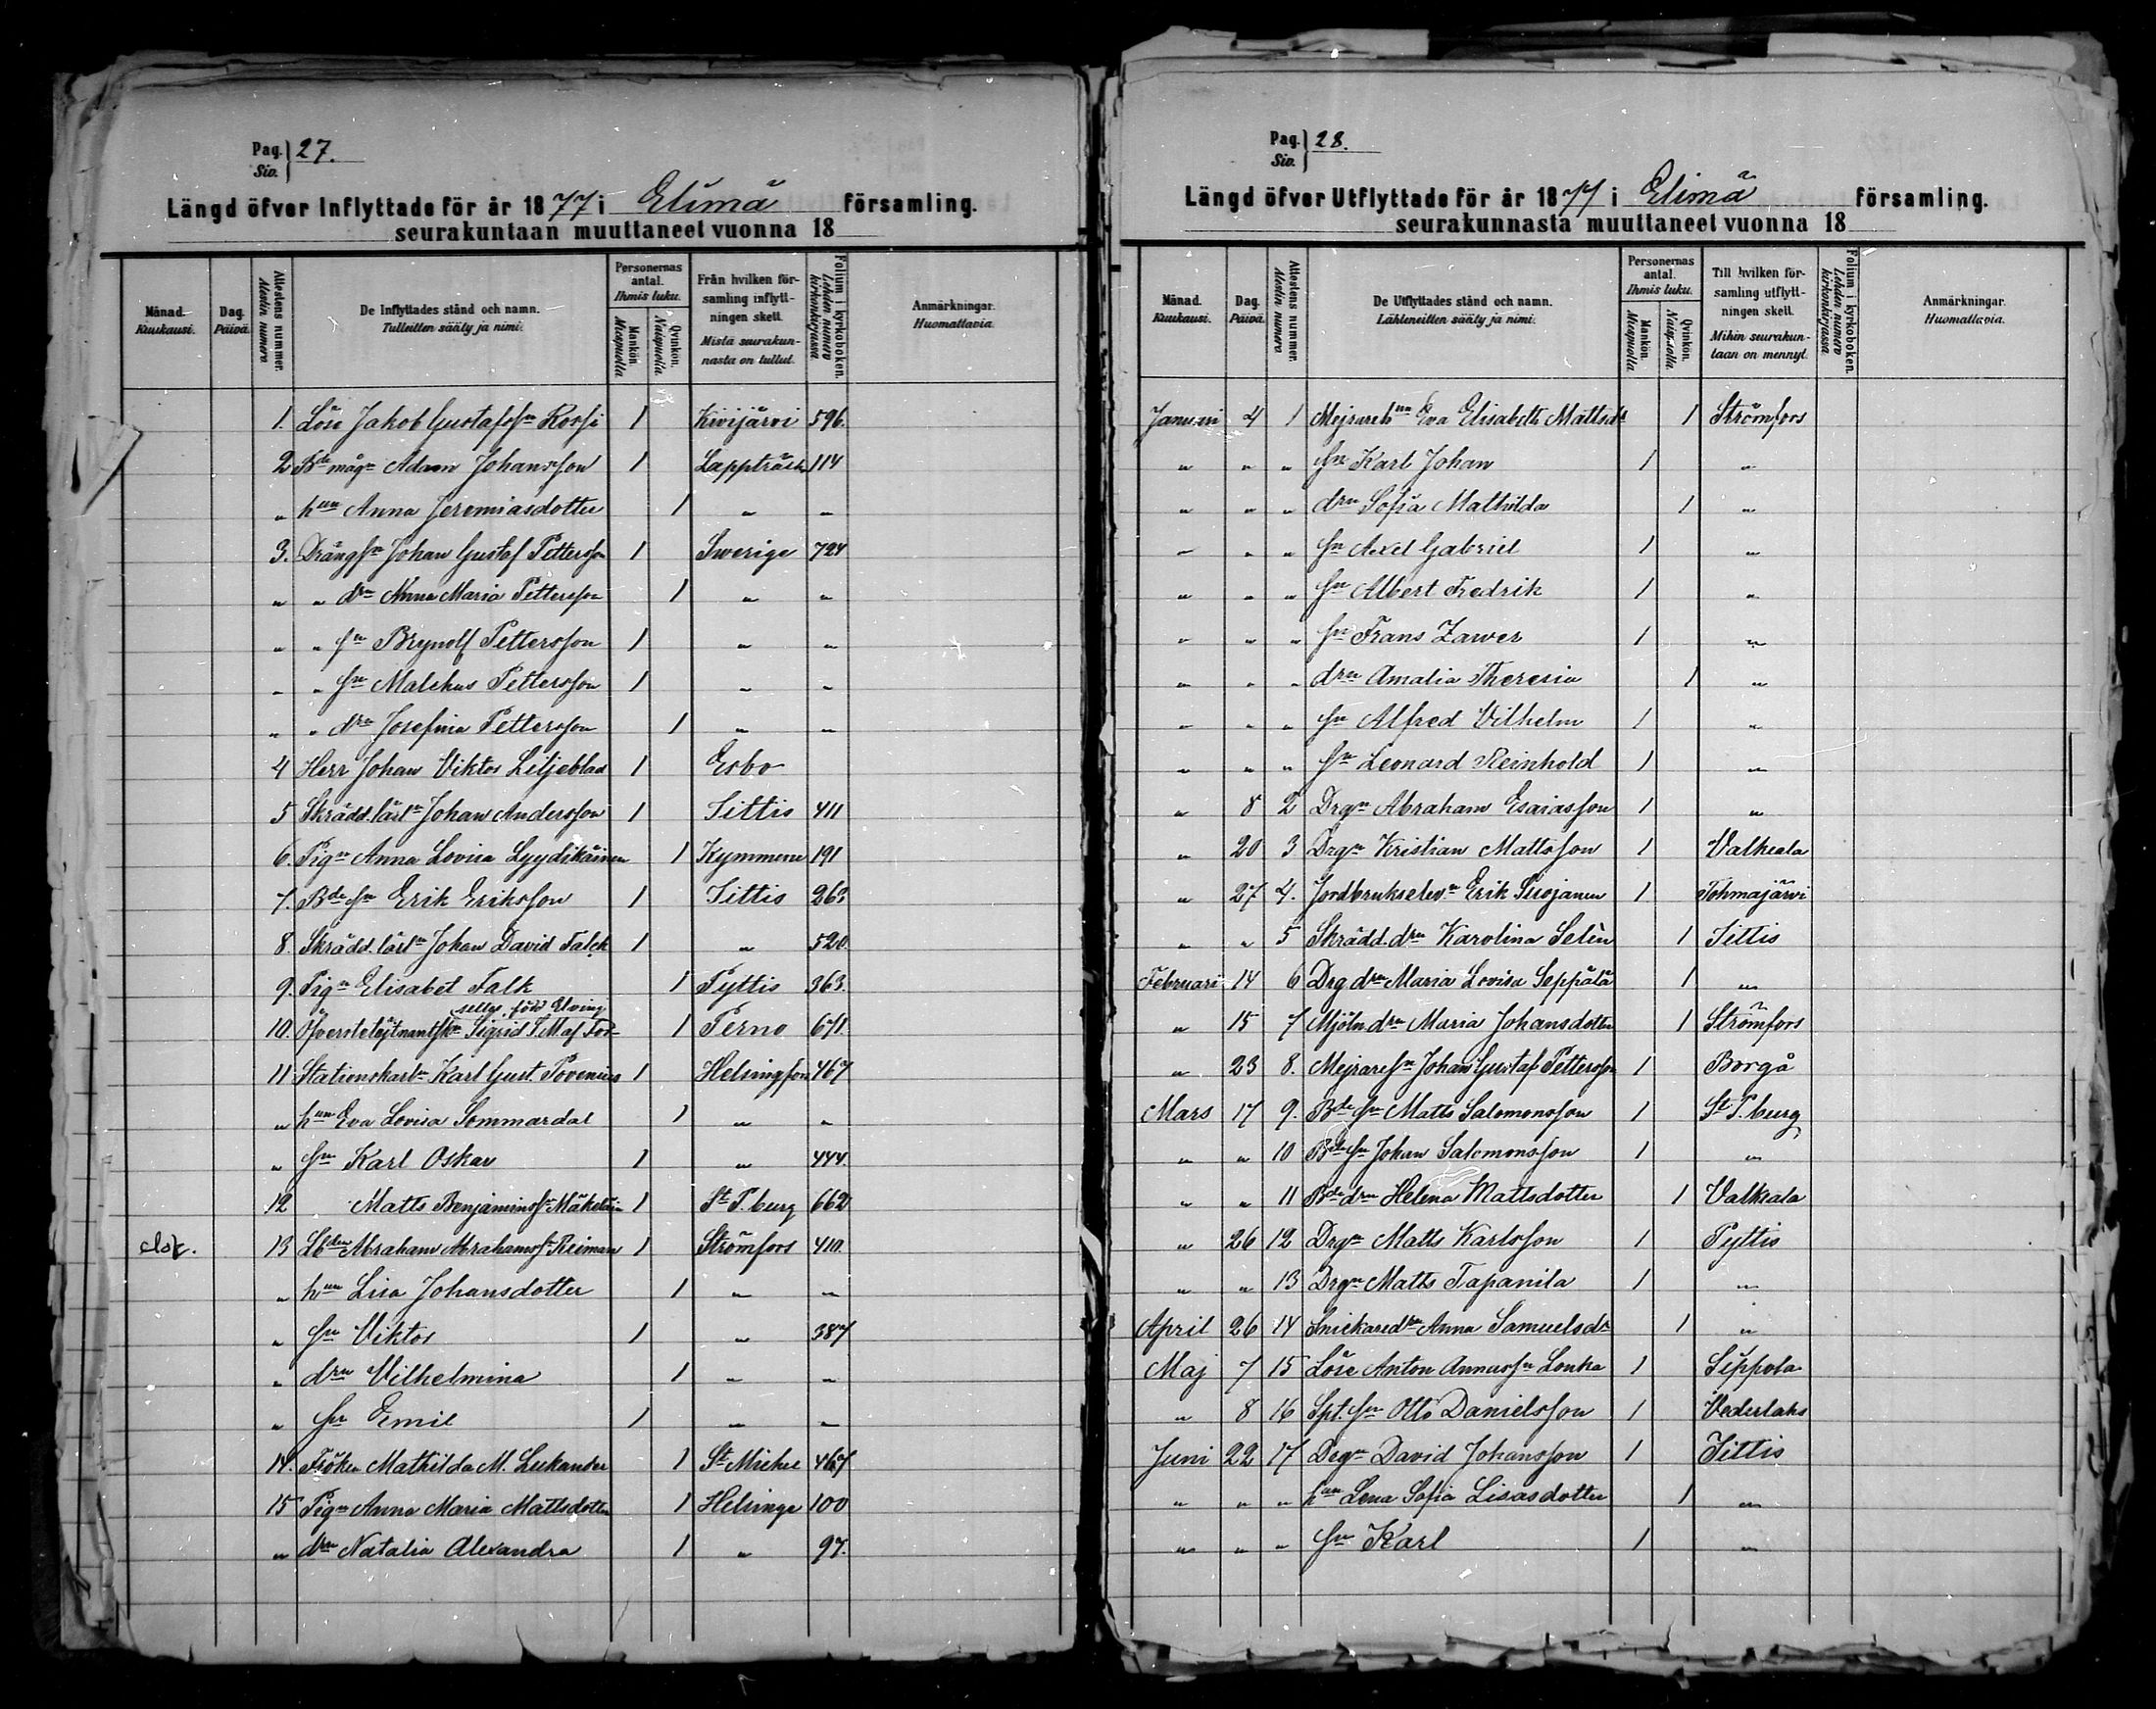 Pag. Siv. 27.
Längd öfver Inflyttade för år 1877 i Elimä församling.
seurakuntaan muuttaneet vuonna 18
Månad. Kuukausi. | Dag. Päivä. | Attestens nummer. Atestin numero | De Inflyttades stånd och namn. Tulleitten sääty ja nimi. | Personernas antal. Ihmis luku. Mankön. Miespuolia Qvinkön. Naispuolia. | Från hvilken församling inflyttningen skett. Mistä seurakunnasta on tullut. | Folium i kyrkoboken. Lehden numero kirkonkirjassa. | Anmärkningar. Huomattavia.
1. Löse Jakob Gustafsson Rossi 1 Kivijärvi 596.
2 Bde mågn Adam Johansson 1 Lappträsk 114
" hun Anna Jeremiasdotter 1 " "
3. Drängsn Johan Gustaf Petterson 1 Swerige 724
" " drn Anna Maria Petterson 1 " "
" " sn Brynolf Pettersson 1 " "
" " sn Malchus Pettersson 1 " "
" " drn Josefina Pettersson 1 " "
4 Herr Johan Viktor Liljeblad 1 Esbo
5 Skrädd. lärln Johan Andersson 1 Sittis 411
6. Pign Anna Lovisa Lyydikäinen 1 Kymmene 191
7. Bde sn Erik Eriksson 1 Sittis 263
8. Skrädd. lärln Johan David Falck 1 " 520.
9. Pign Elisabet Falk 1 Pyttis 363.
född Elving
10. Öfverstelöjtnantskn Sigrid S. M. af 1 Perno 671.
11 Stationskarln Karl Gust. Povenius 1 Helsingfors 467
" hun Eva Lovisa Sommardal 1 " "
" sn Karl Oskar 1 " 444.
12 Matts Benjaminss. 1 St P.burg 662
13 Abraham Abrahamss. Reiman 1 Strömfors 410.
" hun Lisa Johansdotter 1 " "
" sn Viktor 1 " 387
" drn Vilhelmina 1 " "
" sn Emil 1 " "
14. Fröken Mathilda M. Lukander 1 St Michel 467
15 Pign Anna Maria Mattsdotter 1 Helsinge 100
" drn Natalia Alexandra 1 " 97.
Pag. Siv. 28.
Längd öfver Utflyttade för år 1877 i Elimä församling.
seurakunnasta muuttaneet vuonna 18
Månad. Kuukausi. | Dag. Päivä. | Attestens nummer. Atestin numero | De Utflyttades stånd och namn. Lähteneitten sääty ja nimi. | Personernas antal. Ihmis luku. Mankön. Miespuolia Qvinkön. Naispuolia. | Till hvilken församling utflyttningen skett. Mihin seurakuntaan on mennyt. | Folium i kyrkoboken. Lehden numero kirkonkirjassa. | Anmärkningar. Huomattavia.
Januari 4 1 Mejrareh:un Eva Elisabeth Mattsdr 1 Strömfors
" " " sn Karl Johan 1 "
" " " drn Sofia Mathilda 1 "
" " " sn Axel Gabriel 1 "
" " " sn Albert Fredrik 1 "
" " " sn Frans Zawer 1 "
" " " drn Amalia Theresia 1 "
" " " sn Alfred Vilhelm 1 "
" " " sn Leonard Reinhold 1 "
" 8 2 Drgn Abraham Esaiasson 1 "
" 20 3 Drgn Kristian Mattsson 1 Valkeala
" 27 4. Jordbrukselevn Erik Suojanen 1 Tohmajärvi
" " 5 Skrädd. drn Karolina Selèn 1 Sittis
Februari 14 6 Drg drn Maria Lovisa Seppälä 1 "
" 15 7 Mjöln. drn Maria Johansdotter 1 Strömfors
" 23 8. Mejraresn Johan Gustaf Petterson 1 Borgå
Mars 17 9. Bde sn Matts Salomonsson 1 St P.burg
" " 10 Bde sn Johan Salomonsson 1 "
" " 11 Bde drn Helena Mattsdotter 1 Valkeala
" 26 12 Drgn Matts Karlsson 1 Pyttis
" " 13 Drgn Matts Tapanila 1 "
April 26 14 Snickaredrn Anna Samuelsdr 1 "
Maj 7 15 Löse Anton Annassn Louka 1 Sippola
" 8 16 Spt. sn Otto Danielsson 1 Vederlaks
Juni 22 17 Drgn David Johansson 1 Sittis
" " " hun Lena Sofia Lisasdotter 1 "
" " " sn Karl 1 "